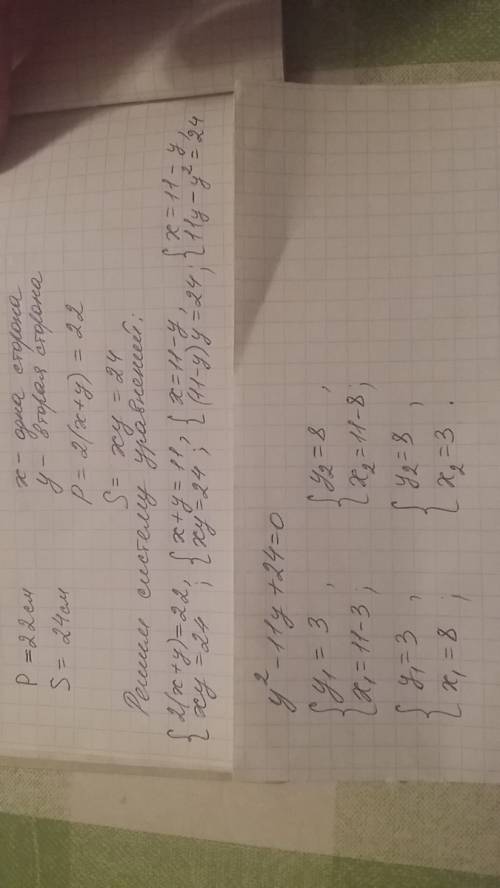 P = 22см
S = 24см
x - одна сторона
y - вторая сторона
P = 2(x+y) = 22
S = xy = 24
Решим систему уравнений:
{2(x+y)=22, {x+y=11, {x=11-y, {x=11-y,
{xy=24 ; {xy=24 ; {(11-y)y=24; {11y-y²=24
y²-11y+24=0
{y₁=3 , {y₂=8 ,
{x₁=11-3; {x₂=11-8;
{y₁=3 , {y₂=8 ,
{x₁=8 ; {x₂=3 .